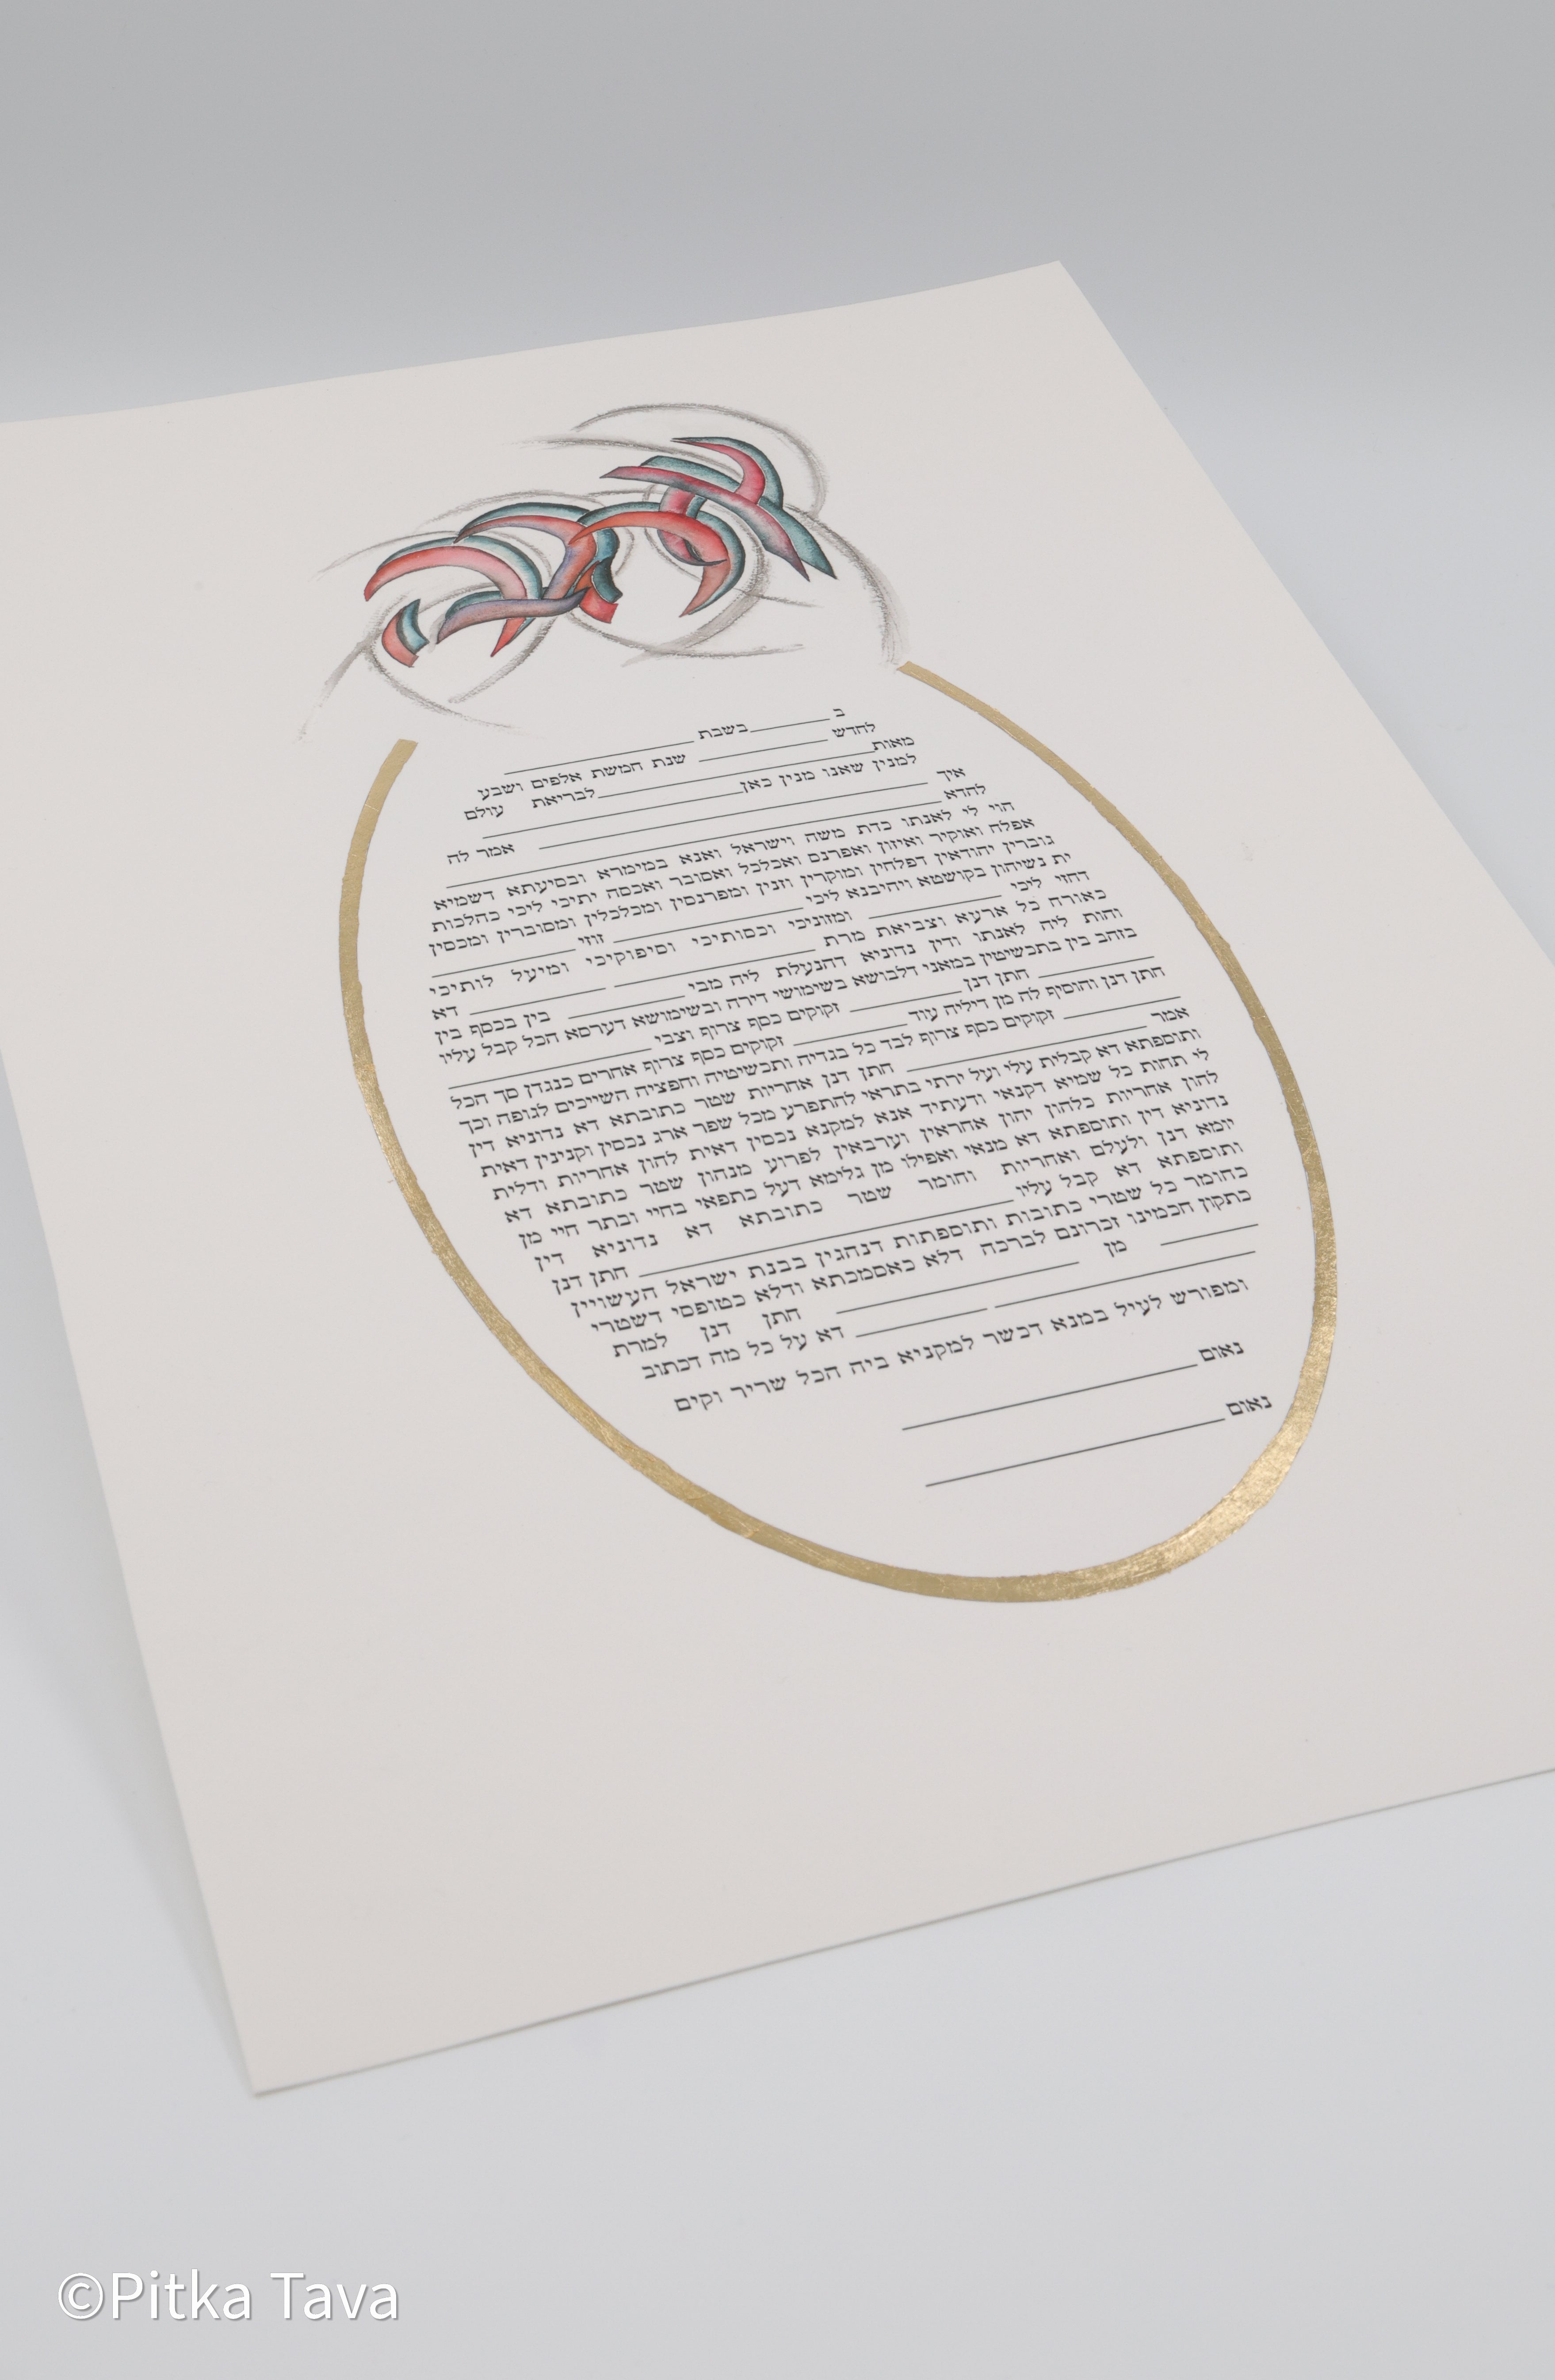 ב ________ בשבת ________________
לחדש ____________ שנת חמשת אלפים ושבע
מאות ________________________ לבריאת עולם
למנין שאנו מנין כאן ______________________
איך ________________________________ אמר לה
להדא ____________________________________________
הוי לי לאנתו כדת משה וישראל ואנא במימרא ובסיעתא דשמיא
אפלח ואוקיר ואיזון ואפרנס ואכלכל ואסובר ואכסה יתיכי ליכי כהלכות
גוברין יהודאין דפלחין ומוקרין וזנין ומפרנסין ומכלכלין ומסוברין ומכסין
ית נשיהון בקושטא ויהיבנא ליכי ________________ זוזי ____________
דחזי ליכי ____________ ומזוניכי וכסותיכי וסיפוקיכי ומיעל לותיכי
כאורח כל ארעא וצביאת מרת ________________ ____________ דא
והות ליה לאנתו ודין נדוניא דהנעלת ליה מבי __________ בין בכסף בין
בזהב בין בתכשיטין במאני דלבושא בשימושי דירה ובשימושא דערסא הכל קבל עליו
__________ חתן דנן __________ זקוקים כסף צרוף וצבי ________________
חתן דנן והוסיף לה מן דיליה עוד __________ זקוקים כסף צרוף אחרים כנגדן סך הכל
__________ זקוקים כסף צרוף לבד כל בגדיה ותכשיטיה וחפציה השייכים לגופה וכך
אמר ____________________ חתן דנן אחריות שטר כתובתא דא נדוניא דין
ותוספתא דא קבלית עלי ועל ירתי בתראי להתפרע מכל שפר ארג נכסין וקנינין דאית
לי תחות כל שמיא דקנאי ודעתיד אנא למקנא נכסין דאית להון אחריות ודלית
להון אחריות כלהון יהון אחראין וערבאין לפרוע מנהון שטר כתובתא דא
נדוניא דין ותוספתא דא מנאי ואפילו מן גלימא דעל כתפאי בחיי ובתר חיי מן
יומא דנן ולעלם ואחריות וחומר שטר כתובתא דא נדוניא דין
ותוספתא דא קבל עליו ______________________________ חתן דנן
כחומר כל שטרי כתובות ותוספתות דנהגין בבנת ישראל העשויין
כתקון חכמינו זכרונם לברכה דלא כאסמכתא ודלא כטופסי דשטרי
________ מן ____________________ חתן דנן למרת
____________________ __________ דא על כל מה דכתוב
ומפורש לעיל במנא דכשר למקניא ביה הכל שריר וקים
נאום ________________________
נאום ________________________
©Pitka Tava